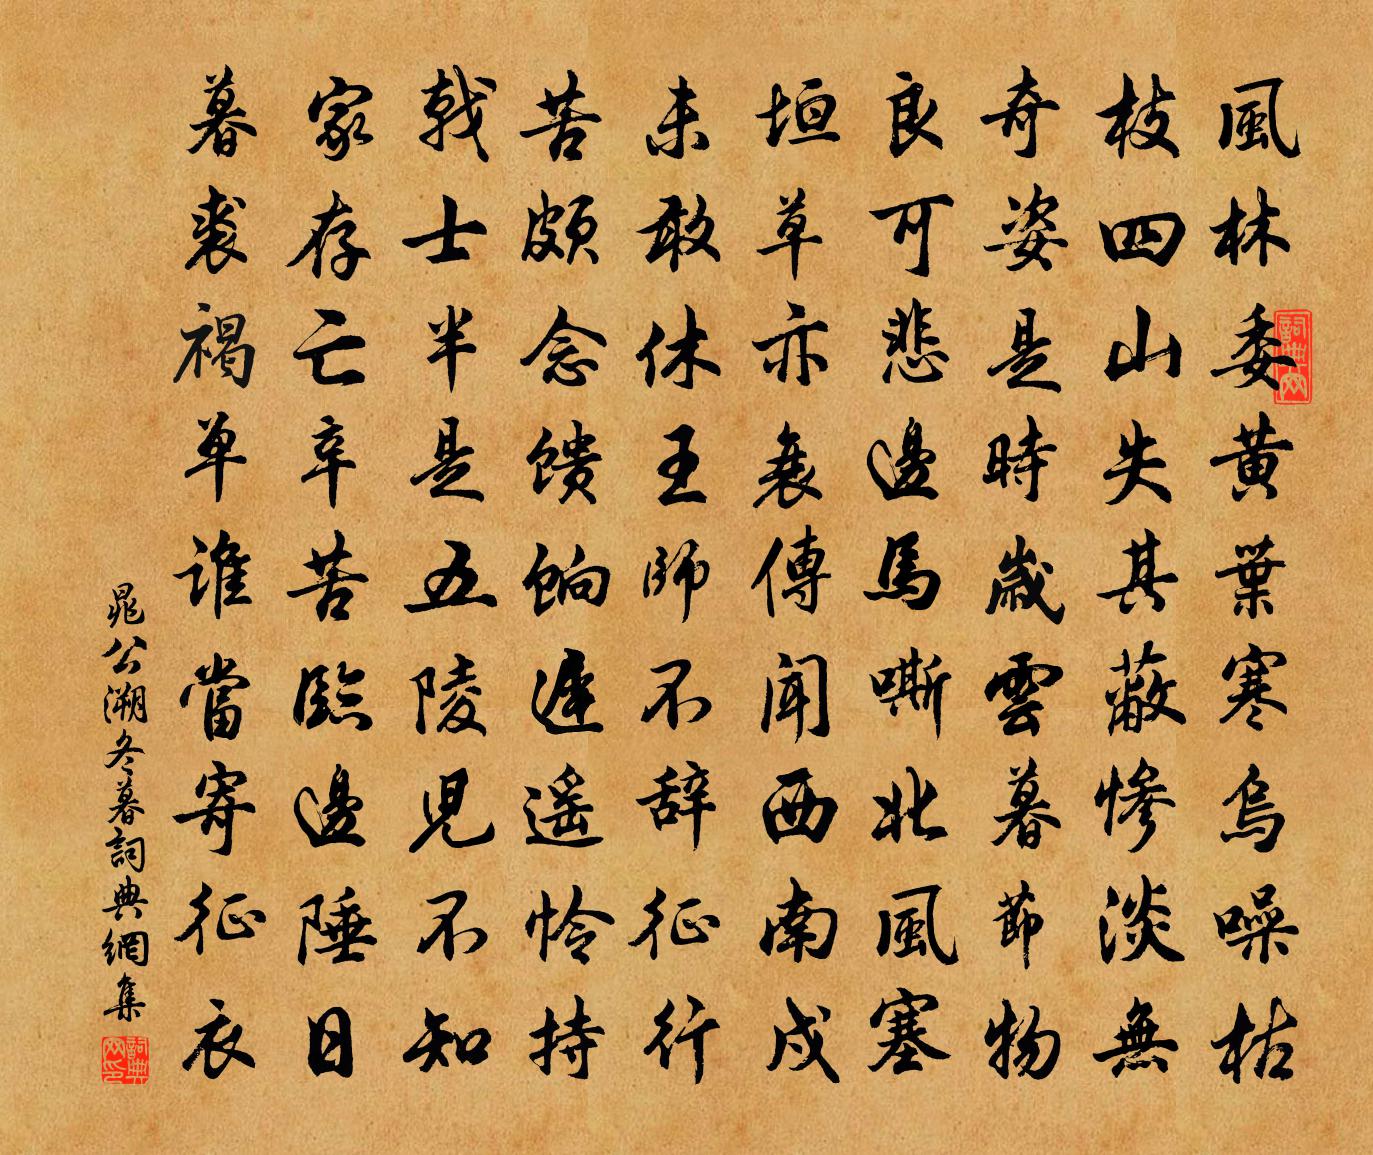 風林委黄葉寒烏噪枯
枝四山失其蔽惨淡無
奇姿是時歲雲暮節物
良可悲邊馬嘶北風塞
垣草亦衰傳聞西南戍
未敢休王師不辞征行
苦頗念馈饷遲遥怜持
戟士半是五陵児不知
家存亡辛苦臨邊陲日
暮裘褐单誰當寄征衣
晁公溯冬暮詞典網集
詞典网
詞典网印